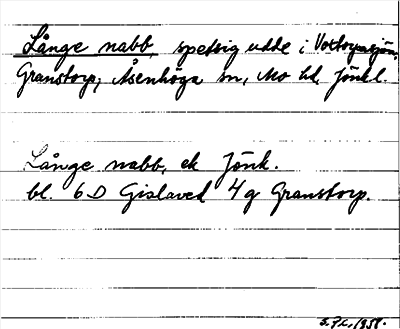 Långe nabb, spetsig udde i
Granstorp, Åsenhöga sn, Mo hd, Jönk l.
Långe nabb, ek Jönk.
bl. 6D Gislaved 4g Granstorp.
1958.